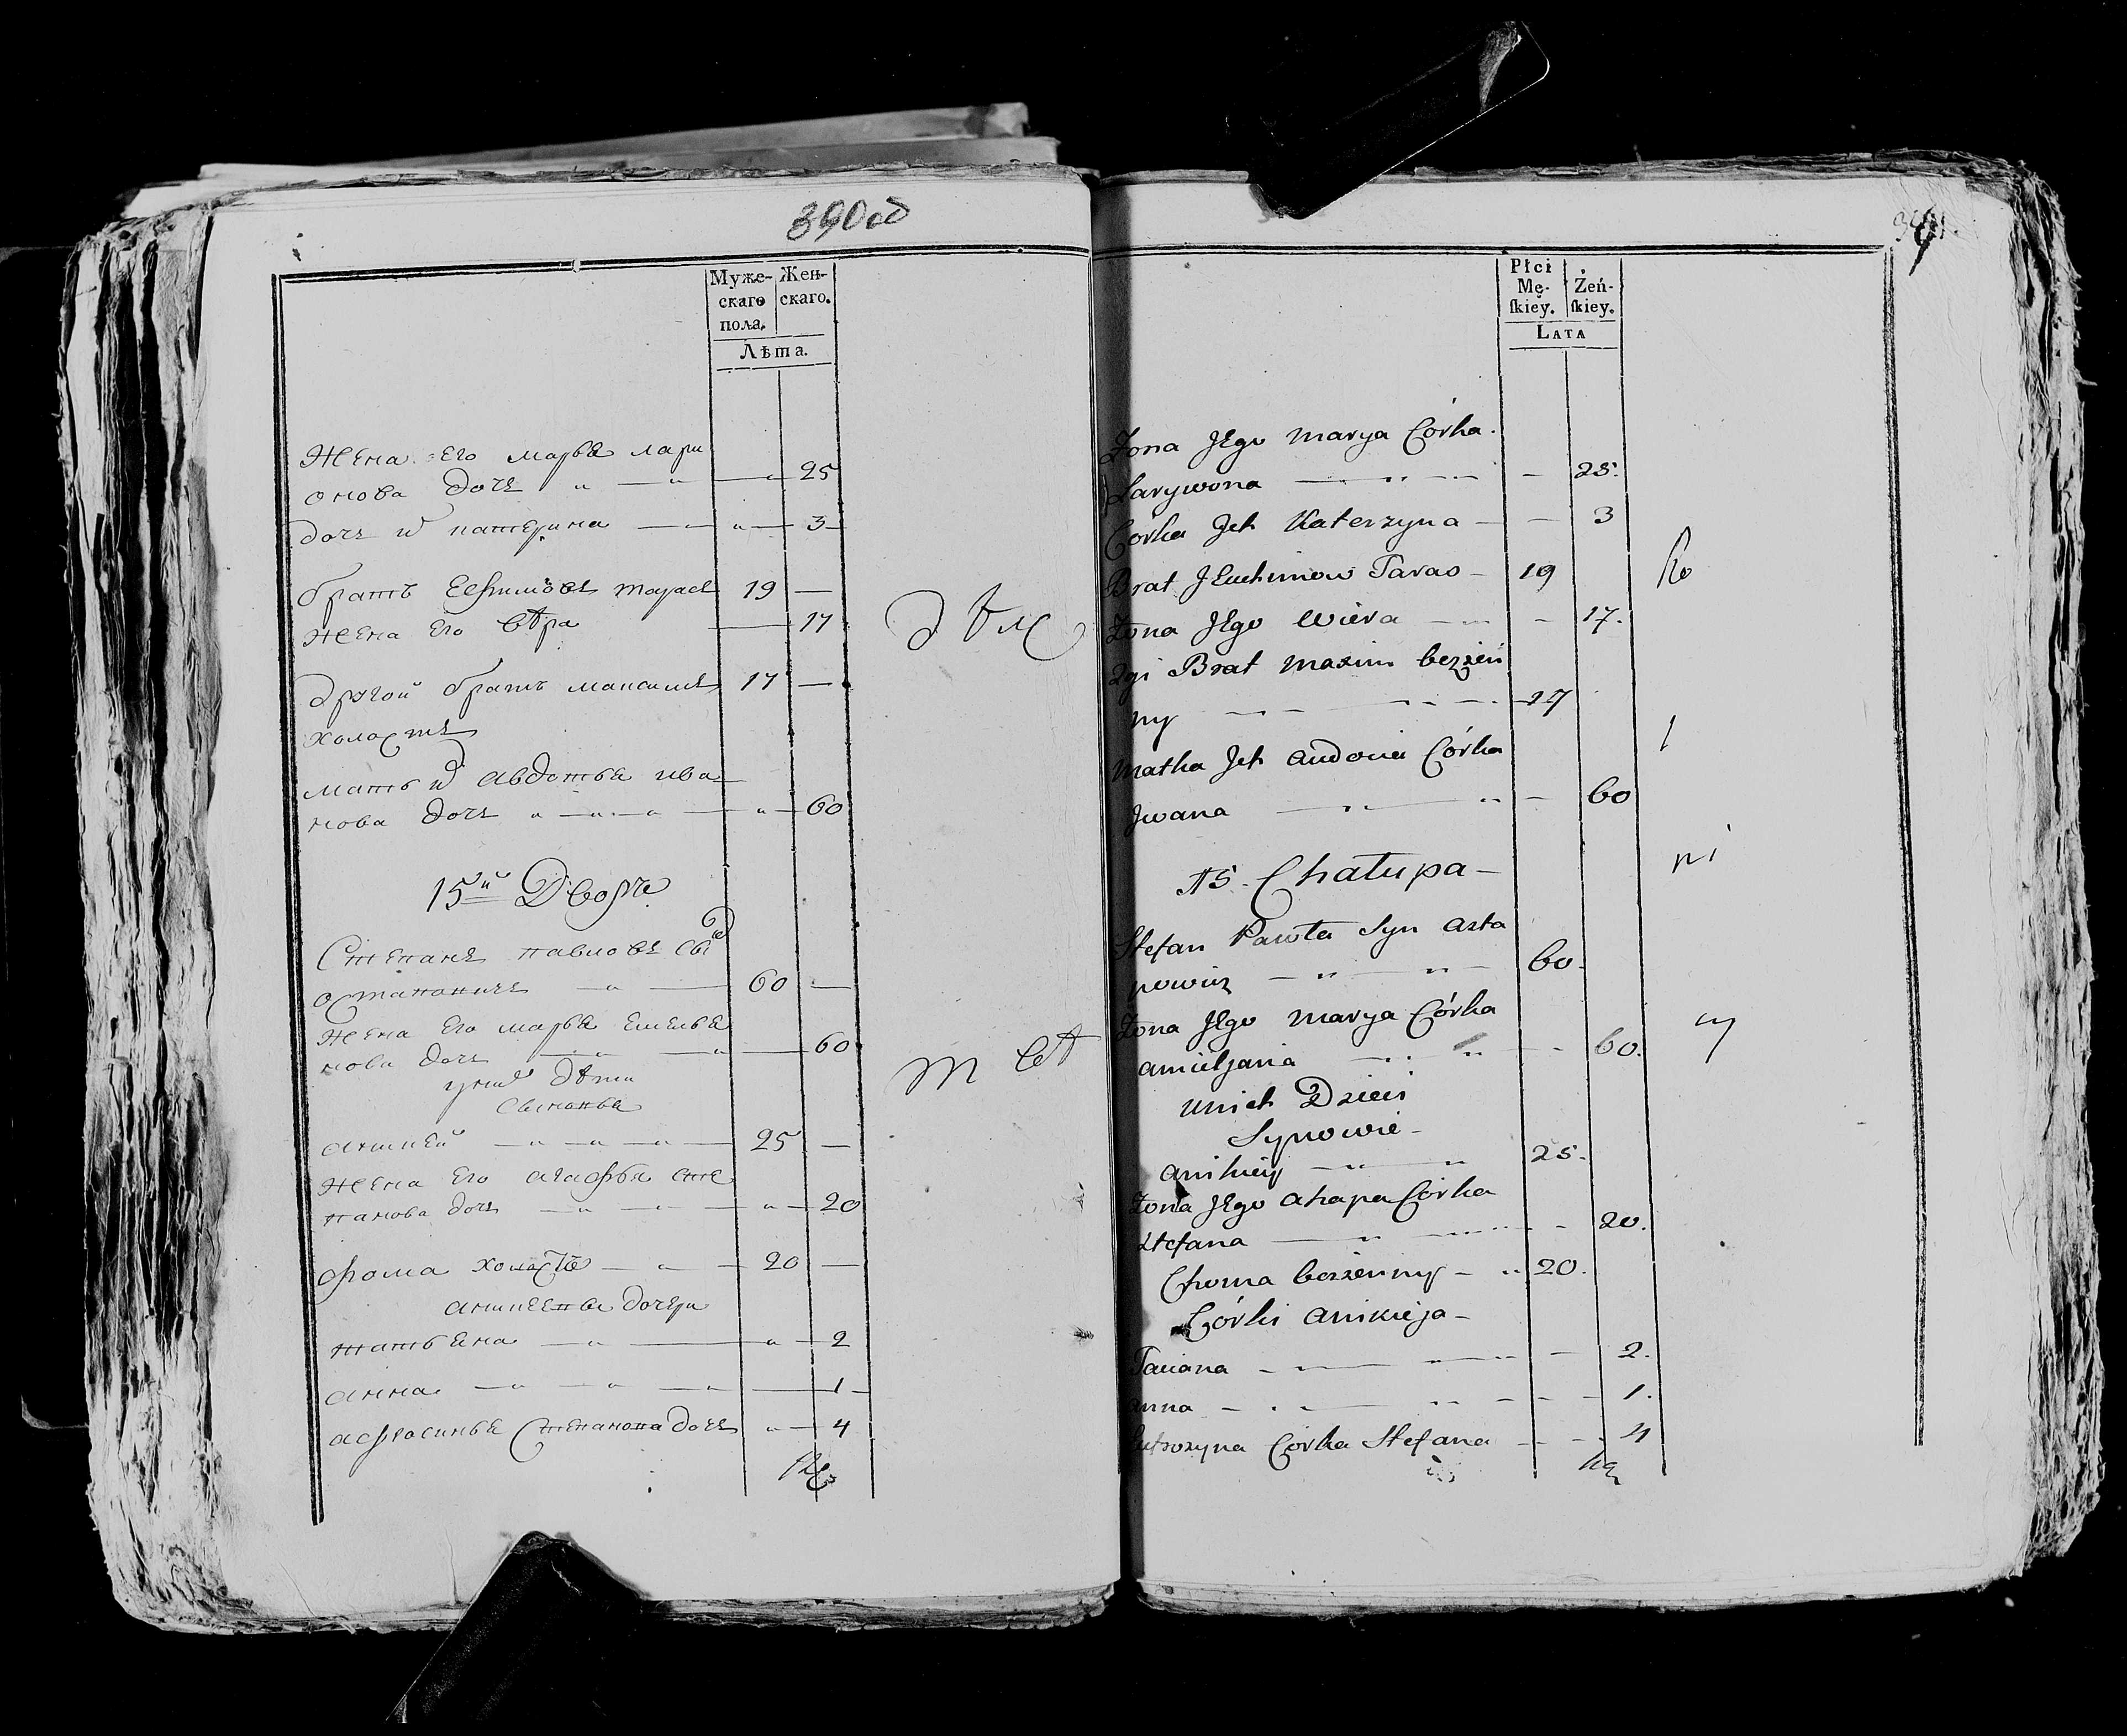 390 об
Муже-
скаго
пола.
Жен-
скаго.
Лѣта.
Жена Его марья лари
онова дочь 25
дочь их катерина 3
братъ Ефимовъ тарасъ 19
Жена Его вѣра 17
другой братъ максимъ 17
холостъ
мать их авдотья ива
нова дочь 60
15й Дворъ
Степанъ павловъ сынъ
остаповичъ 60
Жена Его марья Емелья
нова дочь 60
у них дѣти
сыновья
аникей 25
Жена Его агафья сте
панова дочь 20
фома холостъ 20
аникеевы дочери
татьяна 2
анна 1
афросинья Степанова дочь 4
391.
Płci
Mę-
ſkiey.
Żeń-
ſkiey.
Lata
Żona Jego Marya Córka
Larywona 25.
Córka Ich Katerzyna 3
Brat Jeuchimow Taras 19
Żona Jego Wiera 17.
2gi Brat Maxim bezżen
ny 17
Matka Ich Audocia Córka
Jwana 60
15. Chałupa
Stefan Pawła Syn Asta
powicz 60.
Żona Jego Marya Córka
Amieljana 60.
u nich Dzieci
Synowie
Anikiey 25.
Żona Jego Ahapa Córka
Stefana 20.
Choma bezżenny 20.
Córki Anikieja
Taciana 2.
Anna 1.
Córka Stefana 4